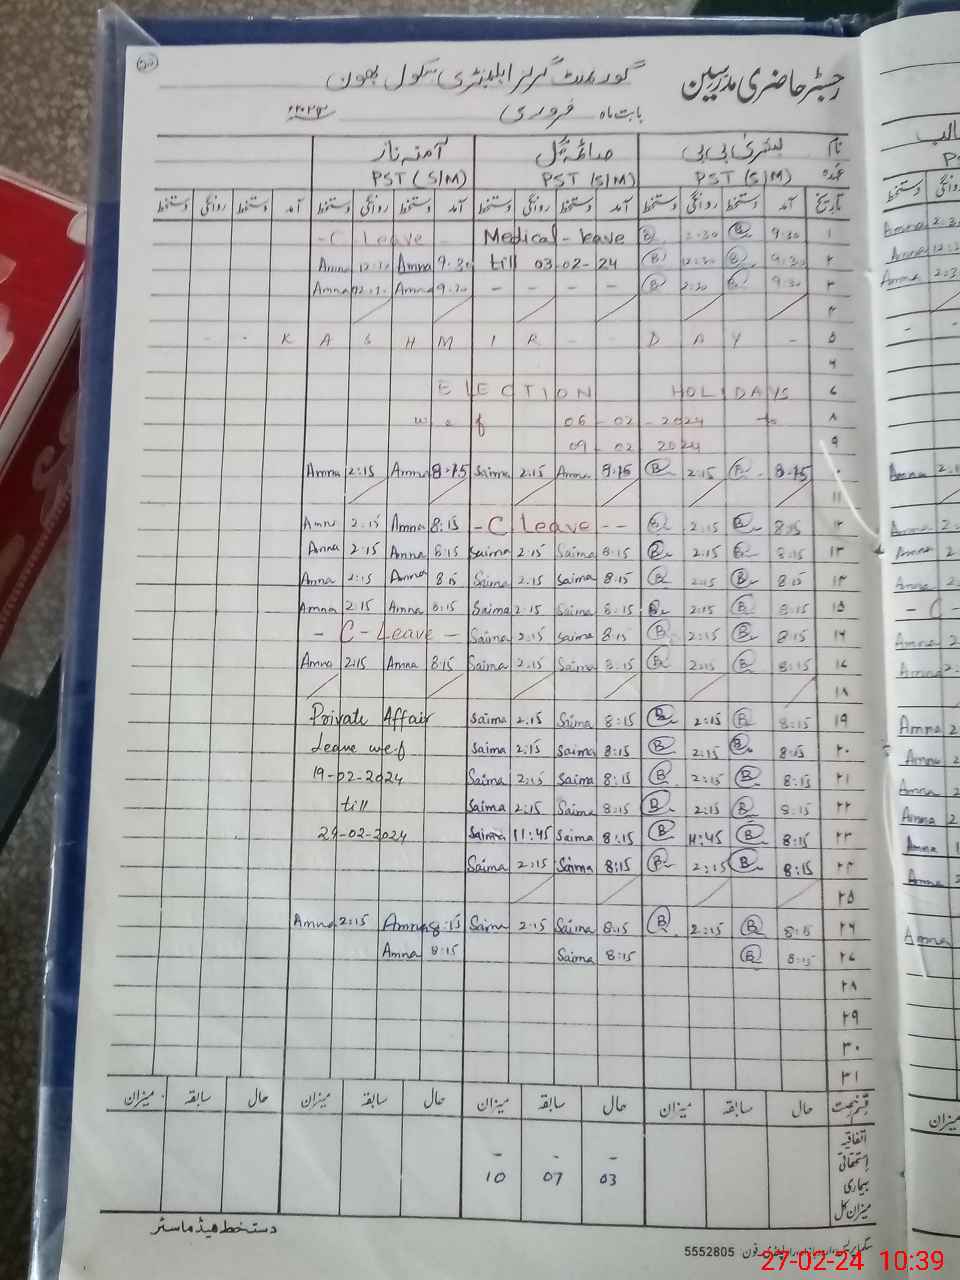 رجسٹر حاضری مدرسین گورنمنٹ گرلز ایلیمنٹری سکول بھون
بابت ماہ فروری
نام بشریٰ بی بی صائمہ گل آمنہ ناز
عہدہ PST (S/M) PST (S/M) PST (S/M)
تاریخ آمد دستخط روانگی دستخط آمد دستخط روانگی دستخط آمد دستخط روانگی دستخط آمد دستخط روانگی دستخط
۱ 9:30 B 2:30 B Medical - leave - C Leave -
۲ 9:30 B 12:30 B till 03-02-24 9:30 Amna 12:30 Amna
۳ 9:30 B 2:30 B - - - - 9:30 Amna Amna
۴
۵ - - K A S H M I R - - D A Y -
۶
ELECTION HOLIDAYS
۸ w.e.f 06-02-2024 to
۹ 09-02-2024
8:15 B 2:15 B 8:15 2:15 Saima 8:15 Amna 2:15 Amna
۱۱
۱۲ 8:15 B 2:15 B - C Leave - - 8:15 Amna 2:15 Amna
۱۳ 8:15 B 2:15 B 8:15 Saima 2:15 Saima 8:15 Amna 2:15 Amna
۱۴ 8:15 B 2:15 B 8:15 Saima 2:15 Saima 8:15 Amna 2:15 Amna
۱۵ 8:15 B 2:15 B 8:15 Saima 2:15 Saima 8:15 Amna 2:15 Amna
۱۶ 8:15 B 2:15 B 8:15 Saima 2:15 Saima - C-Leave -
8:15 B 2:15 B 8:15 Saima 2:15 Saima 8:15 Amna 2:15 Amna
۱۸
۱۹ 8:15 B 2:15 B 8:15 Saima 2:15 Saima Private Affair
۲۰ 8:15 B 2:15 B 8:15 Saima 2:15 Saima Leave w.e.f
۲۱ 8:15 B 2:15 B 8:15 Saima 2:15 Saima 19-02-2024
۲۲ 8:15 B 2:15 B 8:15 Saima 2:15 Saima till
۲۳ 8:15 B 11:45 B 8:15 Saima 11:45 Saima 24-02-2024
۲۴ 8:15 B 2:15 B 8:15 Saima 2:15 Saima
۲۵
۲۶ 8:15 B 2:15 B 8:15 Saima 2:15 Saima 8:15 Amna 2:15 Amna
8:15 B 8:15 Saima 8:15 Amna
۲۸
۲۹
۳۰
۳۱
قسم رخصت حال سابقہ میزان حال سابقہ میزان حال سابقہ میزان حال سابقہ میزان
اتفاقیہ
استحقاقی - - -
بیماری 03 07 10
میزان کل
دستخط ہیڈ ماسٹر
فون: 5552805
27-02-24 10:39